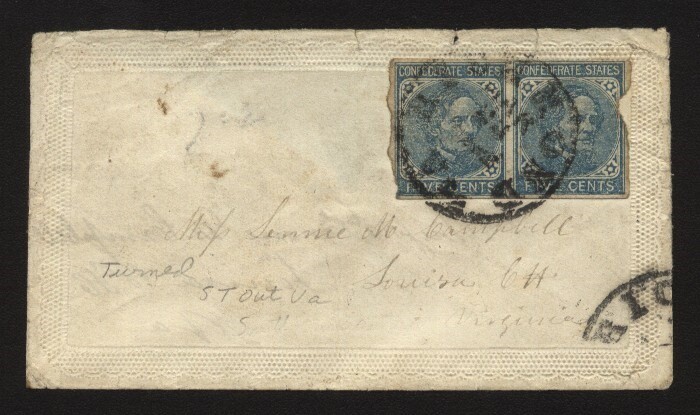 CONFEDERATE STATES CONFEDERATE STATES
FIVE CENTS FIVE CENTS
Miss Jennie M. Campbell
Turned
Louisa CH
STOut Va
Virginia
RIC